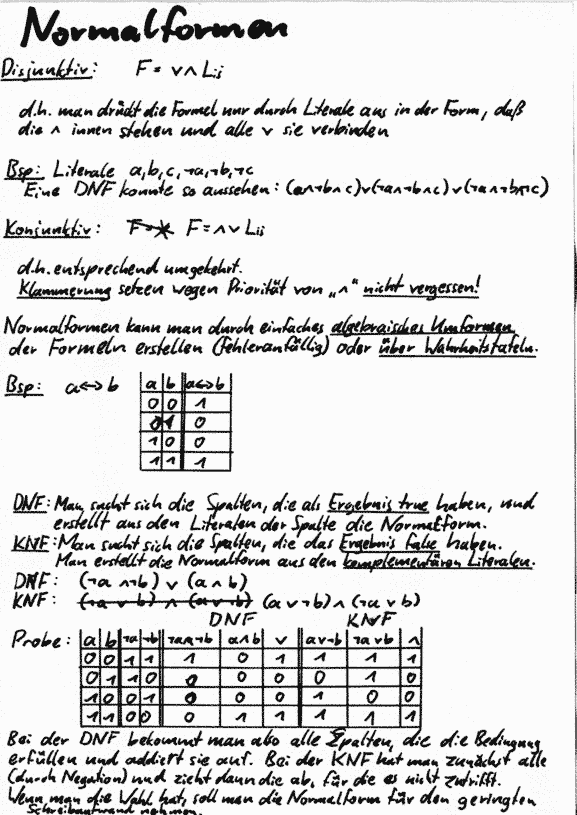 Normalformen
Disjunktiv: F = ∨∧ Lij
d.h. man drückt die Formel nur durch Literale aus in der Form, daß
die ∧ innen stehen und alle ∨ sie verbinden
Bsp: Literale a,b,c,¬a,¬b,¬c
Eine DNF könnte so aussehen: (a∧¬b∧c)∨(¬a∧¬b∧c)∨(¬a∧¬b∧¬c)
Konjunktiv: F = ∧∨ Lij
d.h. entsprechend umgekehrt.
Klammerung setzen wegen Priorität von „∧" nicht vergessen!
Normalformen kann man durch einfaches algebraisches Umformen
der Formeln erstellen (fehleranfällig) oder über Wahrheitstafeln.
Bsp: a↔b
a b a↔b
0 0 1
0 1 0
1 0 0
1 1 1
DNF: Man sucht sich die Spalten, die als Ergebnis true haben, und
erstellt aus den Literalen der Spalte die Normalform.
KNF: Man sucht sich die Spalten, die das Ergebnis false haben.
Man erstellt die Normalform aus den komplementären Literalen.
DNF: (¬a ∧ ¬b) ∨ (a ∧ b)
KNF: (¬a ∨ b) ∧ (a ∨ ¬b) (a ∨ ¬b) ∧ (¬a ∨ b)
DNF KNF
Probe: a b ¬a ¬b ¬a∧¬b a∧b ∨ a∨¬b ¬a∨b ∧
0 0 1 1 1 0 1 1 1 1
0 1 1 0 0 0 0 0 1 0
1 0 0 1 0 0 0 1 0 0
1 1 0 0 0 1 1 1 1 1
Bei der DNF bekommt man also alle Spalten, die die Bedingung
erfüllen und addiert sie auf. Bei der KNF hat man zunächst alle
(durch Negation) und zieht dann die ab, für die es nicht zutrifft.
Wenn man die Wahl hat, soll man die Normalform für den geringten
Schreibaufwand nehmen.